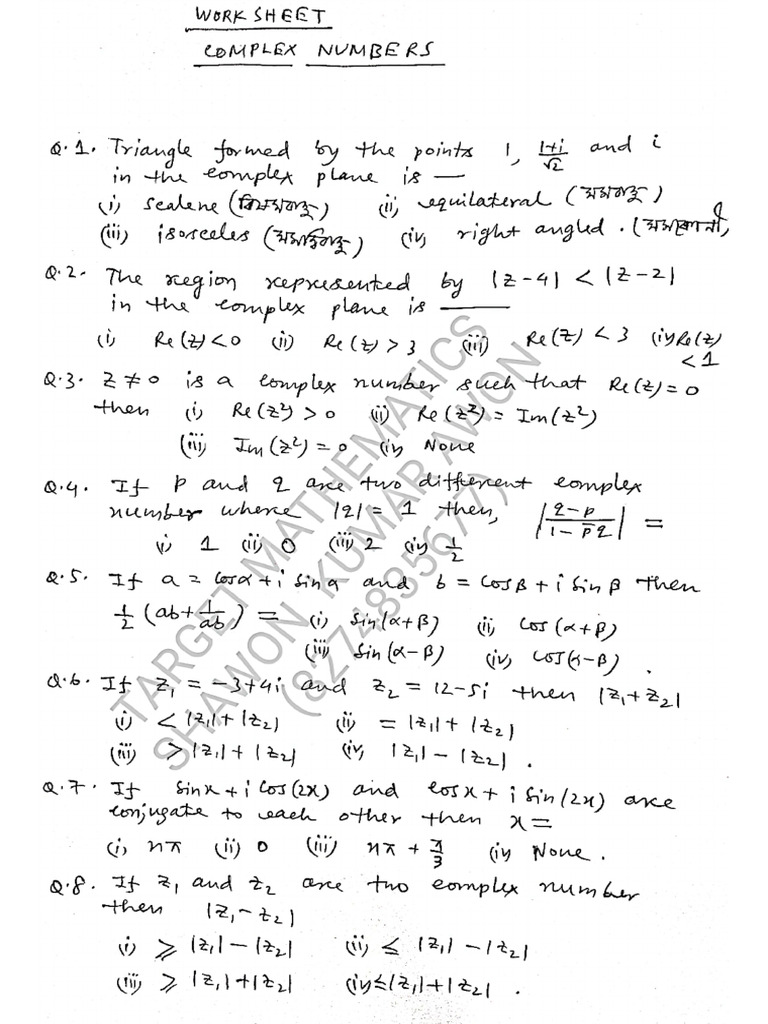 WORKSHEET
COMPLEX NUMBERS
Q.1. Triangle formed by the points 1, (1+i)/√2 and i
in the complex plane is —
(i) scalene (বিষমবাহু) (ii) equilateral (সমবাহু)
(iii) isosceles (সমদ্বিবাহু) (iv) right angled. (সমকোণী)
Q.2. The region represented by |z-4| < |z-2|
in the complex plane is ———
(i) Re(z)<0 (ii) Re(z)>3 (iii) Re(z)<3 (iv) Re(z)
<1
Q.3. z≠0 is a complex number such that Re(z)=0
then (i) Re(z²)>0 (ii) Re(z²) = Im(z²)
(iii) Im(z²)=0 (iv) None
Q.4. If p and q are two different complex
number where |q|=1 then, |(q-p)/(1-p̅q)| =
(i) 1 (ii) 0 (iii) 2 (iv) 1/2
Q.5. If a = cosα+i sinα and b = cosβ+i sinβ then
1/2 (ab+1/ab) = (i) sin(α+β) (ii) cos(α+β)
(iii) sin(α-β) (iv) cos(α-β).
Q.6. If z₁ = -3+4i and z₂ = 12-5i then |z₁+z₂|
(i) < |z₁|+|z₂| (ii) = |z₁|+|z₂|
(iii) > |z₁|+|z₂| (iv) |z₁|-|z₂|.
Q.7. If sinx+i cos(2x) and cosx+i sin(2x) are
conjugate to each other then x=
(i) nπ (ii) 0 (iii) nπ+π/3 (iv) None.
Q.8. If z₁ and z₂ are two complex number
then |z₁-z₂|
(i) ⩾ |z₁|-|z₂| (ii) ≤ |z₁|-|z₂|
(iii) ⩾ |z₁|+|z₂| (iv) ≤|z₁|+|z₂|.
TARGET MATHEMATICS
SHAWON KUMAR AWON
(8274835677)